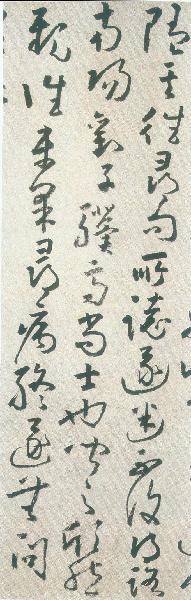 隨其往尋向所誌遂迷不復得路
南陽劉子驥高尚士也聞之欣然
規往未果尋病終遂無問